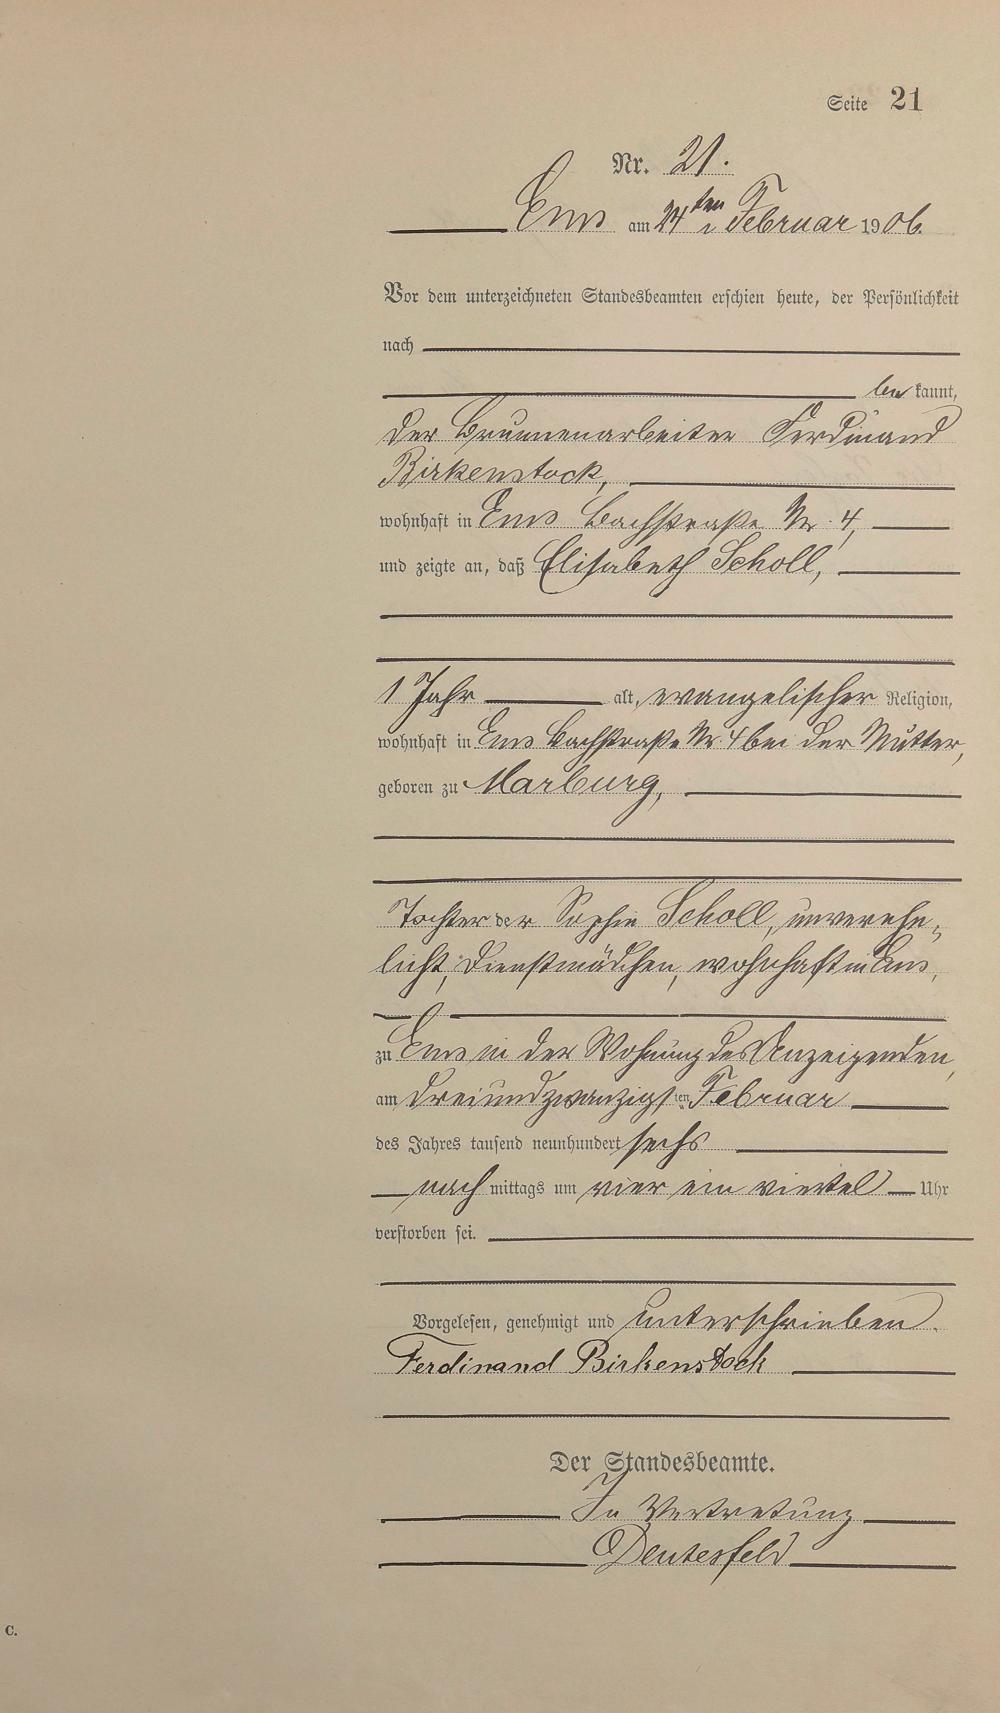 Seite 21
Nr. 21.
Ems am 24ten Februar 1906.
Vor dem unterzeichneten Standesbeamten erschien heute, der Persönlichkeit
nach
bekannt,
der Brunnenarbeiter Ferdinand
Birkenstock,
wohnhaft in Ems Bachstraße Nr. 4,
und zeigte an, daß Elisabeth Scholl,
1 Jahr alt, evangelischer Religion,
wohnhaft in Ems Bachstraße Nr 4 bei der Mutter,
geboren zu Marburg,
Tochter der Sophie Scholl, unvereh-
licht, Dienstmädchen, wohnhaft in Ems,
zu Ems in der Wohnung des Anzeigenden,
am dreiundzwanzigsten Februar
des Jahres tausend neunhundert sechs
nachmittags um vier ein viertel Uhr
verstorben sei.
Vorgelesen, genehmigt und unterschrieben.
Ferdinand Birkenstock
Der Standesbeamte.
In Vertretung
C.